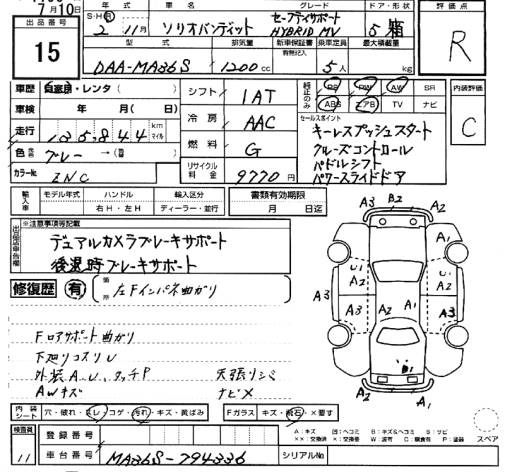 7月10日
年式 車名 グレード ドア・形状 評価点
出品番号
15
S・H・R 2 11月 ソリオバンディット セーフティサポート HYBRID MV 5 箱
R
型式 排気量 新車保証書 乗車定員 最大積載量
有無記入
DAA-MA36S 1200cc 5人 kg
車歴 自家用・レンタ( )
シフト 1AT
純正のみ PS PW AW SR
ABS エアB TV ナビ
内装評価
C
車検 年 月( 日)
冷房 AAC
セールスポイント
キーレスプッシュスタート
クルーズコントロール
パドルシフト
パワースライドドア
走行 135,844 km マイル
燃料 G
色 グレー →( )
カラーNo. ZNC
リサイクル料金 9770円
輸入車 モデル年式 ハンドル 輸入区分
右H・左H ディーラー・並行
書類有効期限
月 日迄
出品店申告欄
※注意事項等記載
デュアルカメラブレーキサポート
後退時ブレーキサポート
修復歴 有 箇所 左Fインパネ曲がり
A3 B2 A2
A2 A1
U1 A2 U1 A2
A3 A3 A2 A1 A3 A3
B1
A2 A1
Fロアサポート曲がり
下廻りコスリU
外装A.U、タッチP 天張りシミ
AWキズ ナビ×
内装シート 穴・破れ・スレ・コゲ・汚れ・キズ・黄ばみ
Fガラス キズ・飛石・×要す
スペア
検査員
11
登録番号
A:キズ U:ヘコミ B:キズ&ヘコミ S:サビ
××:交換済 ×:交換要 W:波有 C:腐食有 P:塗装
車台番号 MA36S-794336 シリアルNo